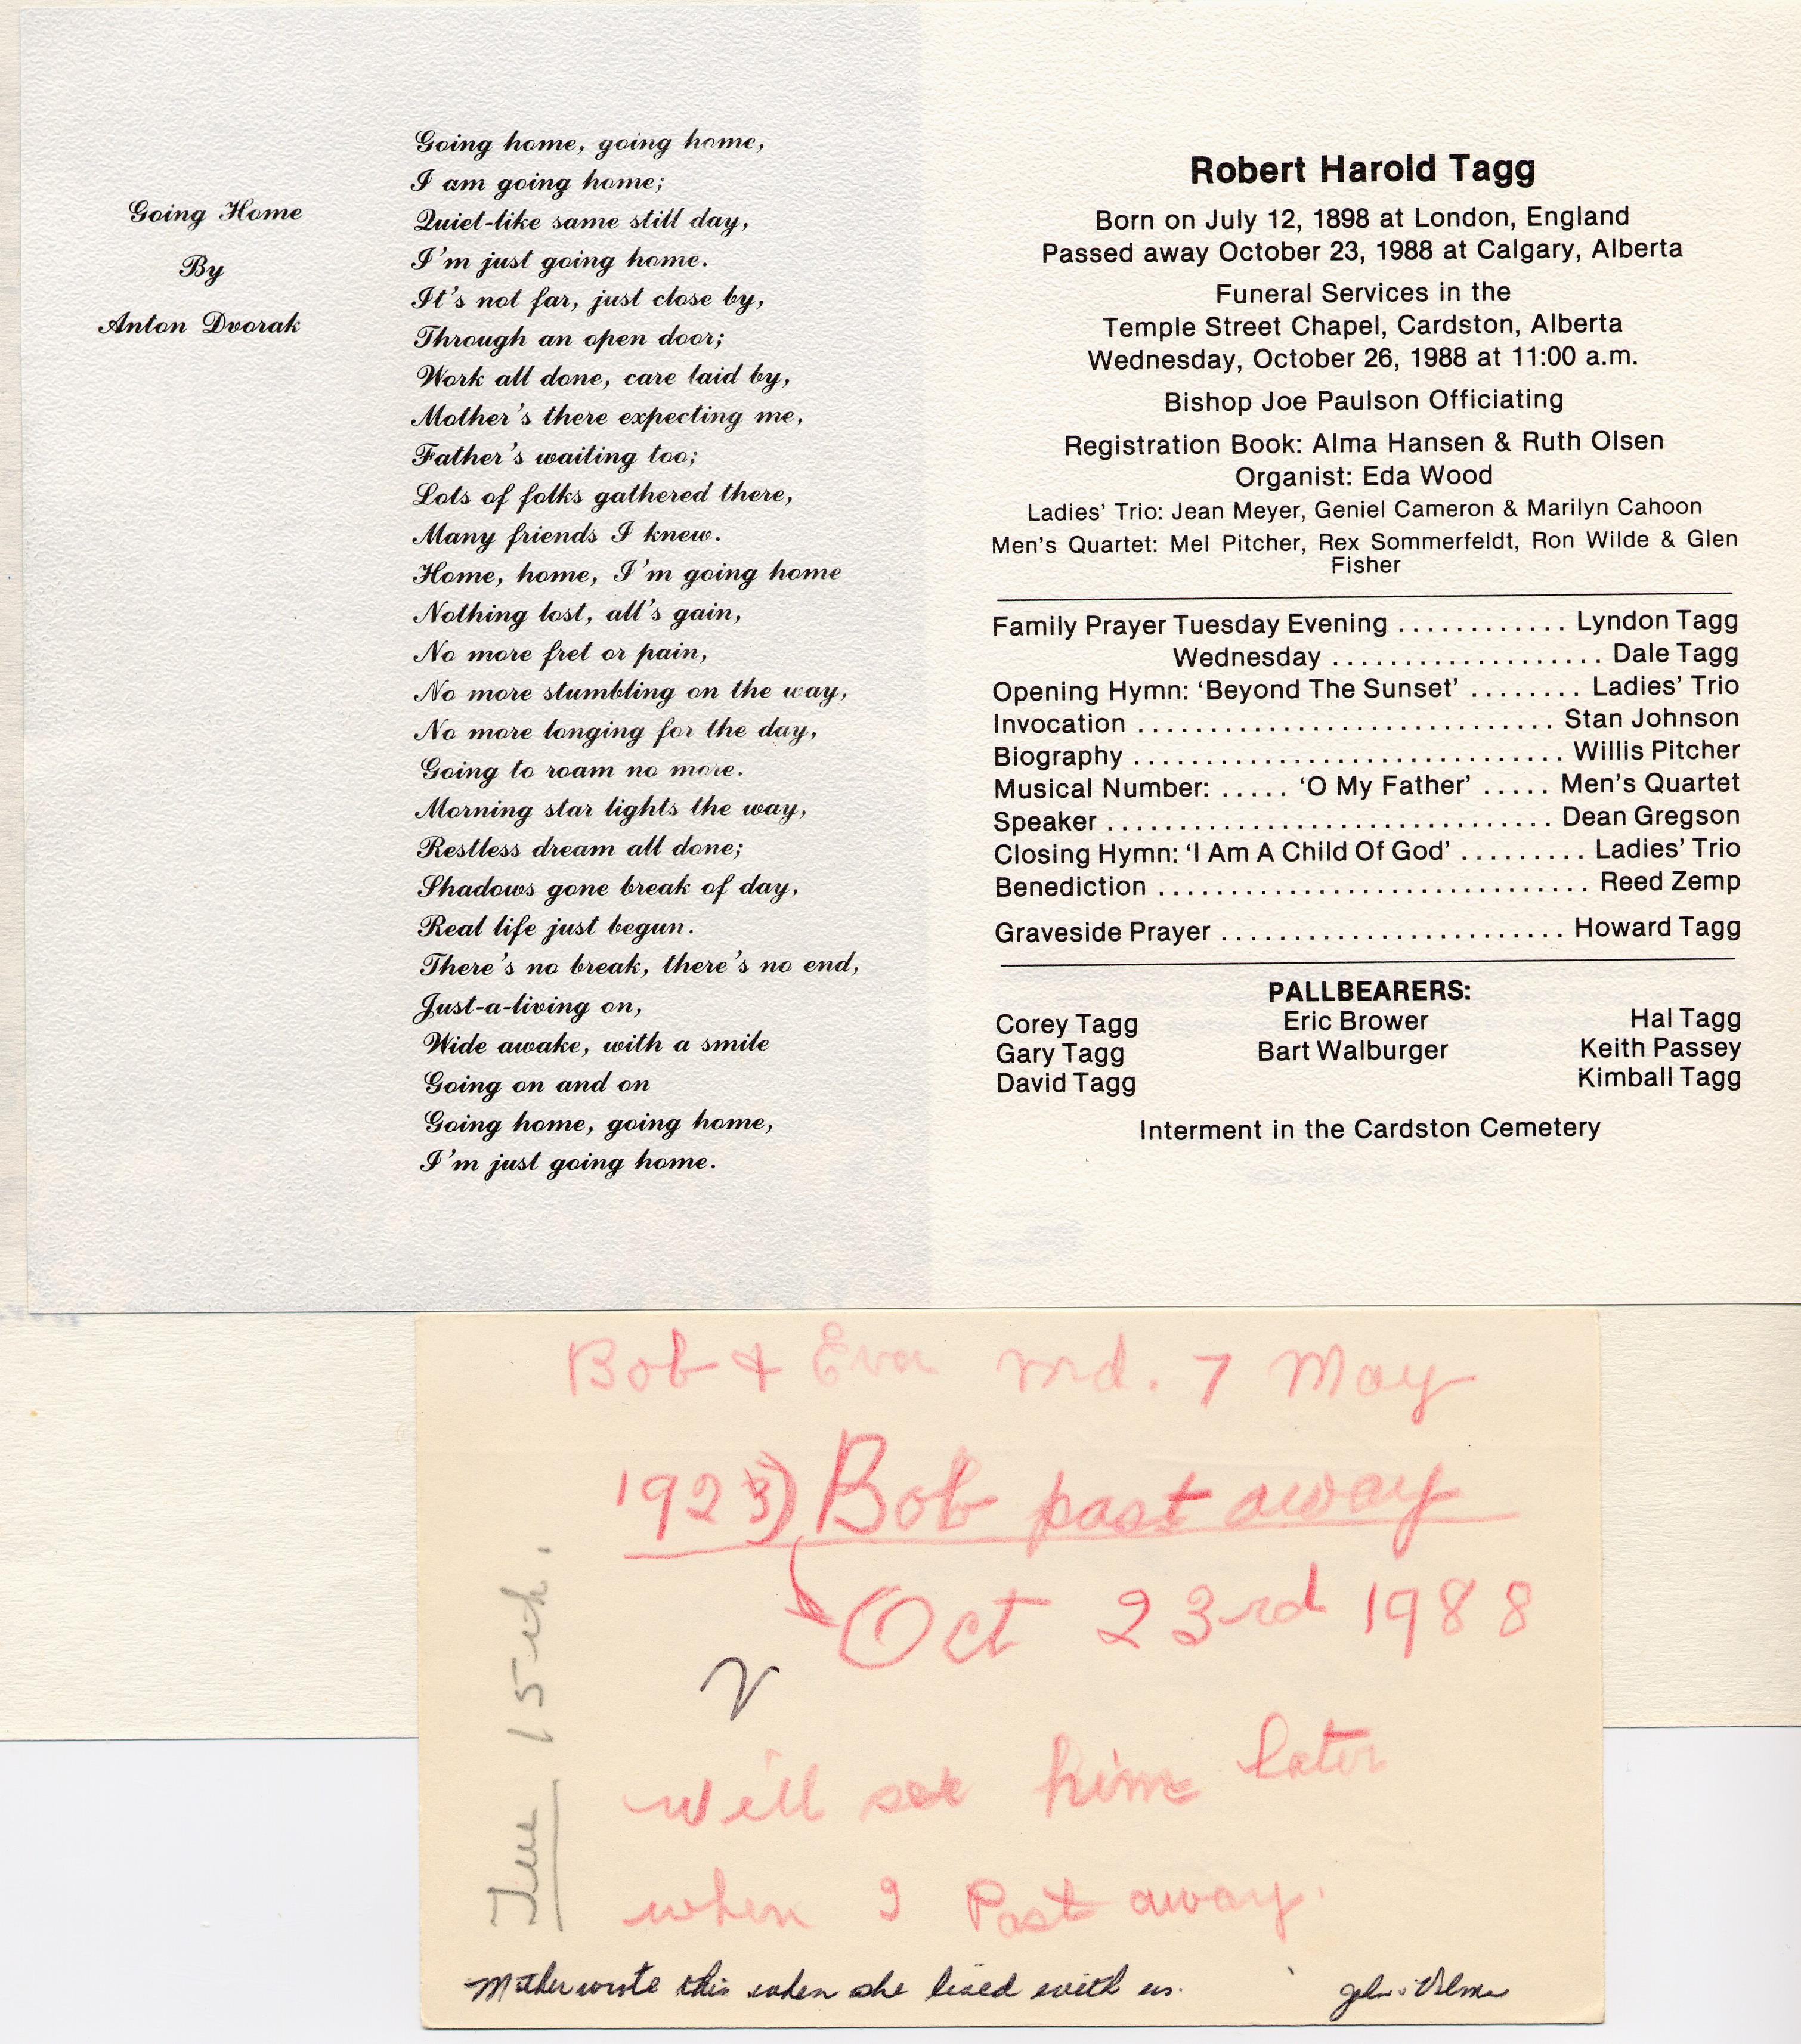 Going Home
By
Anton Dvorak
Going home, going home,
I am going home;
Quiet-like same still day,
I'm just going home.
It's not far, just close by,
Through an open door;
Work all done, care laid by,
Mother's there expecting me,
Father's waiting too;
Lots of folks gathered there,
Many friends I knew.
Home, home, I'm going home
Nothing lost, all's gain,
No more fret or pain,
No more stumbling on the way,
No more longing for the day,
Going to roam no more.
Morning star lights the way,
Restless dream all done;
Shadows gone break of day,
Real life just begun.
There's no break, there's no end,
Just-a-living on,
Wide awake, with a smile
Going on and on
Going home, going home,
I'm just going home.
Robert Harold Tagg
Born on July 12, 1898 at London, England
Passed away October 23, 1988 at Calgary, Alberta
Funeral Services in the
Temple Street Chapel, Cardston, Alberta
Wednesday, October 26, 1988 at 11:00 a.m.
Bishop Joe Paulson Officiating
Registration Book: Alma Hansen & Ruth Olsen
Organist: Eda Wood
Ladies' Trio: Jean Meyer, Geniel Cameron & Marilyn Cahoon
Men's Quartet: Mel Pitcher, Rex Sommerfeldt, Ron Wilde & Glen
Fisher
Family Prayer Tuesday Evening ............ Lyndon Tagg
Wednesday ................... Dale Tagg
Opening Hymn: 'Beyond The Sunset' ........ Ladies' Trio
Invocation ............................. Stan Johnson
Biography .............................. Willis Pitcher
Musical Number: ..... 'O My Father' ..... Men's Quartet
Speaker ............................... Dean Gregson
Closing Hymn: 'I Am A Child Of God' ......... Ladies' Trio
Benediction .............................. Reed Zemp
Graveside Prayer ........................ Howard Tagg
PALLBEARERS:
Corey Tagg Eric Brower Hal Tagg
Gary Tagg Bart Walburger Keith Passey
David Tagg Kimball Tagg
Interment in the Cardston Cemetery
Bob & Eva md. 7 May
1923) Bob past away
Oct 23rd 1988
will see him later
when I Past away.
15th.
Mother wrote this when she lived with us.
Velma